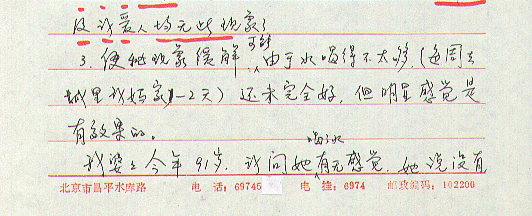 及我爱人均无此现象了
3. 便秘现象缓解，可能由于水喝得不太够（逢周六
城里我妈家1-2天）还未完全好，但明显感觉是
有效果的。
我婆婆今年91岁，我问她喝了水有无感觉，她说没有
北京市昌平水库路 电 话：69745 电 挂：6974 邮政编码：102200